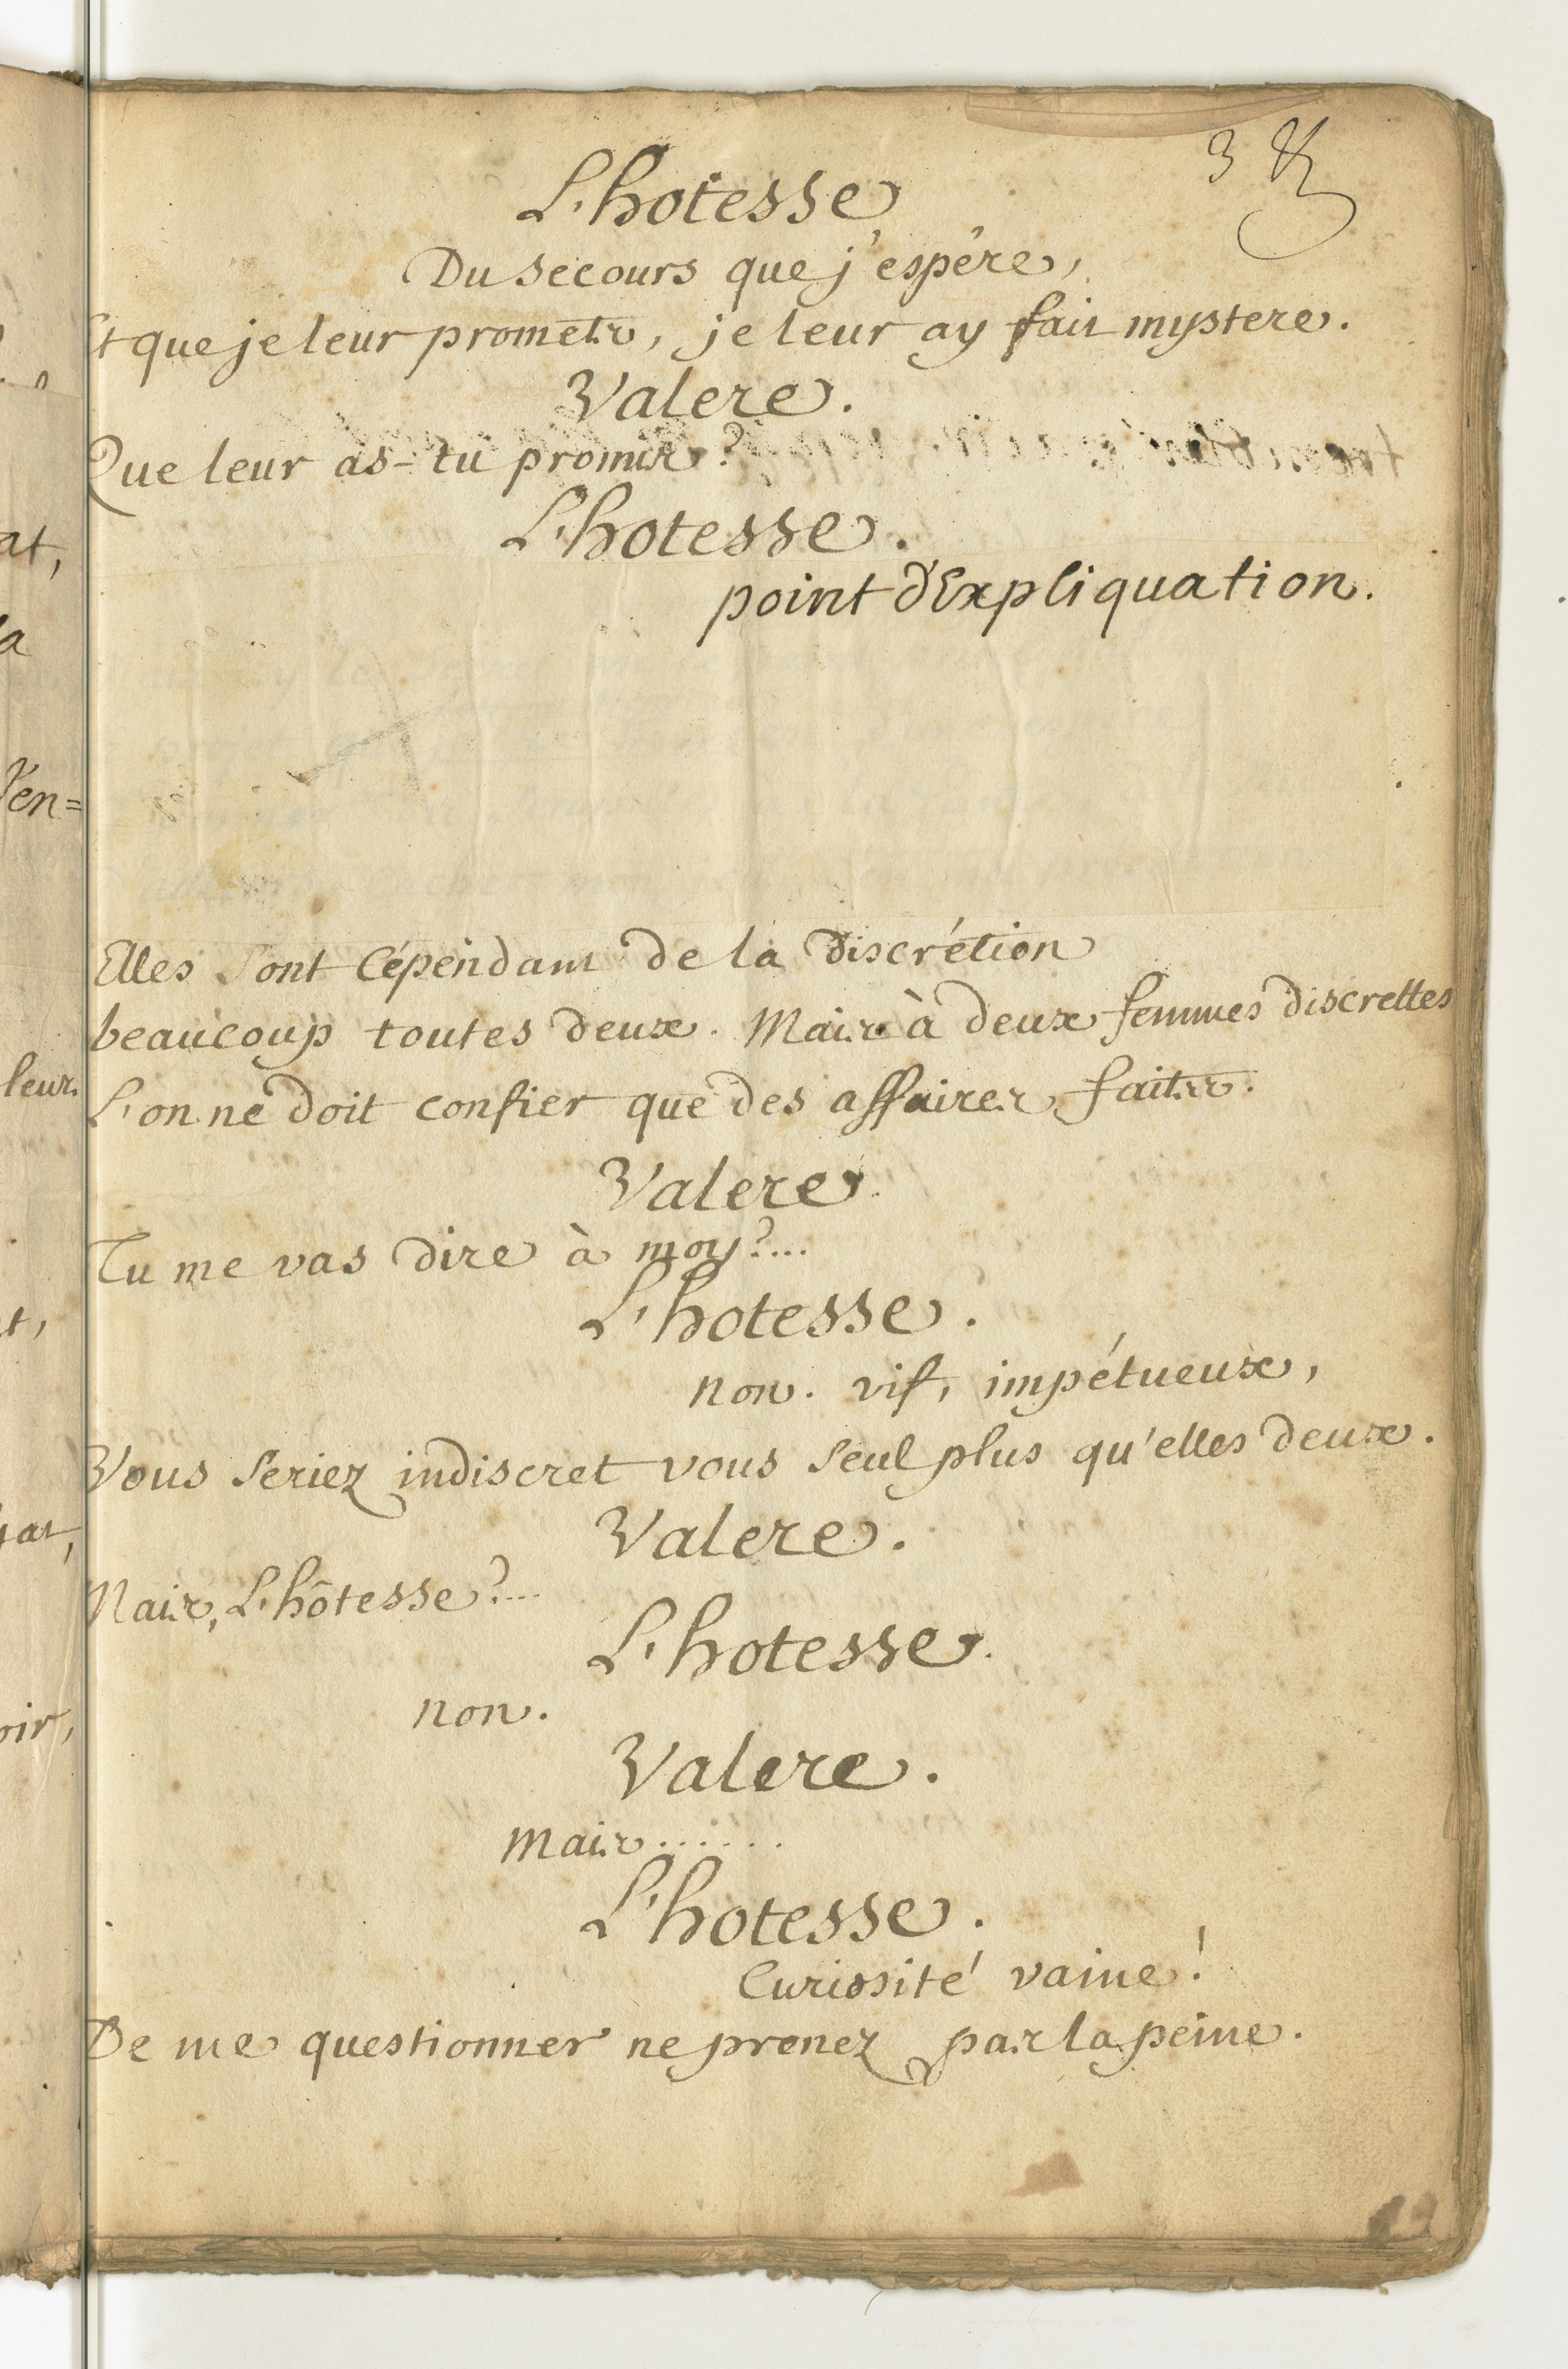 3
L'hotesse
Du secours que j'espére,
Et que je leur promets, je leur ay fait mystere.
Valere.
Que leur as-tu promis?
L'hotesse.
point d'Expliquation.
Elles sont cépendant de la discrétion
beaucoup toutes deux. Mais à deux femmes discrettes
L'on ne doit confier que des affaires faites.
Valere.
Tu me vas dire à moy?...
L'hotesse.
non. vif, impétueux,
Vous seriez indiscret vous seul plus qu'elles deux.
Valere.
Mais, L'hôtesse?...
L'hotesse.
non.
Valere.
mais......
L'hotesse.
Curiosité vaine!
De me questionner ne prenez pas la peine.